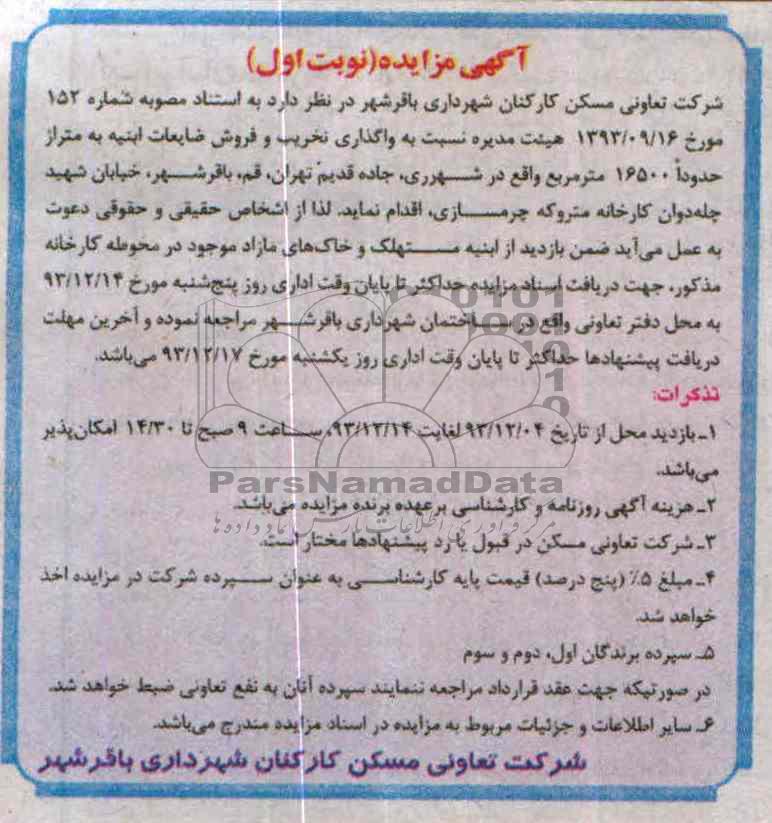 آگهی مزایده(نوبت اول)
شرکت تعاونی مسکن کارکنان شهرداری باقرشهر در نظر دارد به استناد مصوبه شماره ۱۵۲
مورخ ۱۳۹۳/۰۹/۱۶ هیئت مدیره نسبت به واگذاری تخریب و فروش ضایعات ابنیه به متراژ
حدوداً ۱۶۵۰۰ مترمربع واقع در شهرری، جاده قدیم تهران، قم، باقرشهر، خیابان شهید
چله‌دوان کارخانه متروکه چرمسازی، اقدام نماید. لذا از اشخاص حقیقی و حقوقی دعوت
به عمل می‌آید ضمن بازدید از ابنیه مستهلک و خاک‌های مازاد موجود در محوطه کارخانه
مذکور، جهت دریافت اسناد مزایده حداکثر تا پایان وقت اداری روز پنج‌شنبه مورخ ۹۳/۱۲/۱۴
به محل دفتر تعاونی واقع در ساختمان شهرداری باقرشهر مراجعه نموده و آخرین مهلت
دریافت پیشنهادها حداکثر تا پایان وقت اداری روز یکشنبه مورخ ۹۳/۱۲/۱۷ می‌باشد.
تذکرات:
۱ـ بازدید محل از تاریخ ۹۳/۱۲/۰۴ لغایت ۹۳/۱۲/۱۴، ساعت ۹ صبح تا ۱۴/۳۰ امکان‌پذیر
می‌باشد.
ParsNamadData
۲ـ هزینه آگهی روزنامه و کارشناسی برعهده برنده مزایده می‌باشد.
مرکز فرآوری اطلاعات پارس نماد داده ها
۳ـ شرکت تعاونی مسکن در قبول یا رد پیشنهادها مختار است.
۴ـ مبلغ ۵٪ (پنج درصد) قیمت پایه کارشناسی به عنوان سپرده شرکت در مزایده اخذ
خواهد شد.
۵ـ سپرده برندگان اول، دوم و سوم
در صورتیکه جهت عقد قرارداد مراجعه ننمایند سپرده آنان به نفع تعاونی ضبط خواهد شد.
۶ـ سایر اطلاعات و جزئیات مربوط به مزایده در اسناد مزایده مندرج می‌باشد.
شرکت تعاونی مسکن کارکنان شهرداری باقرشهر